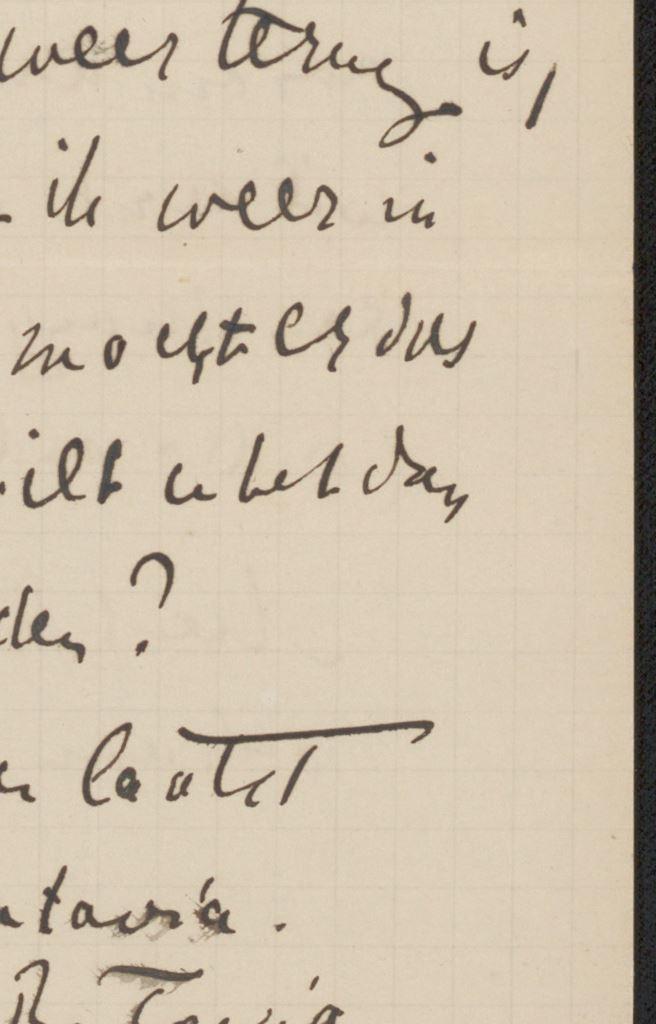 weer terug is,
ik weer in
mocht er dus
wilt u het dan
den?
laatst
atavia.